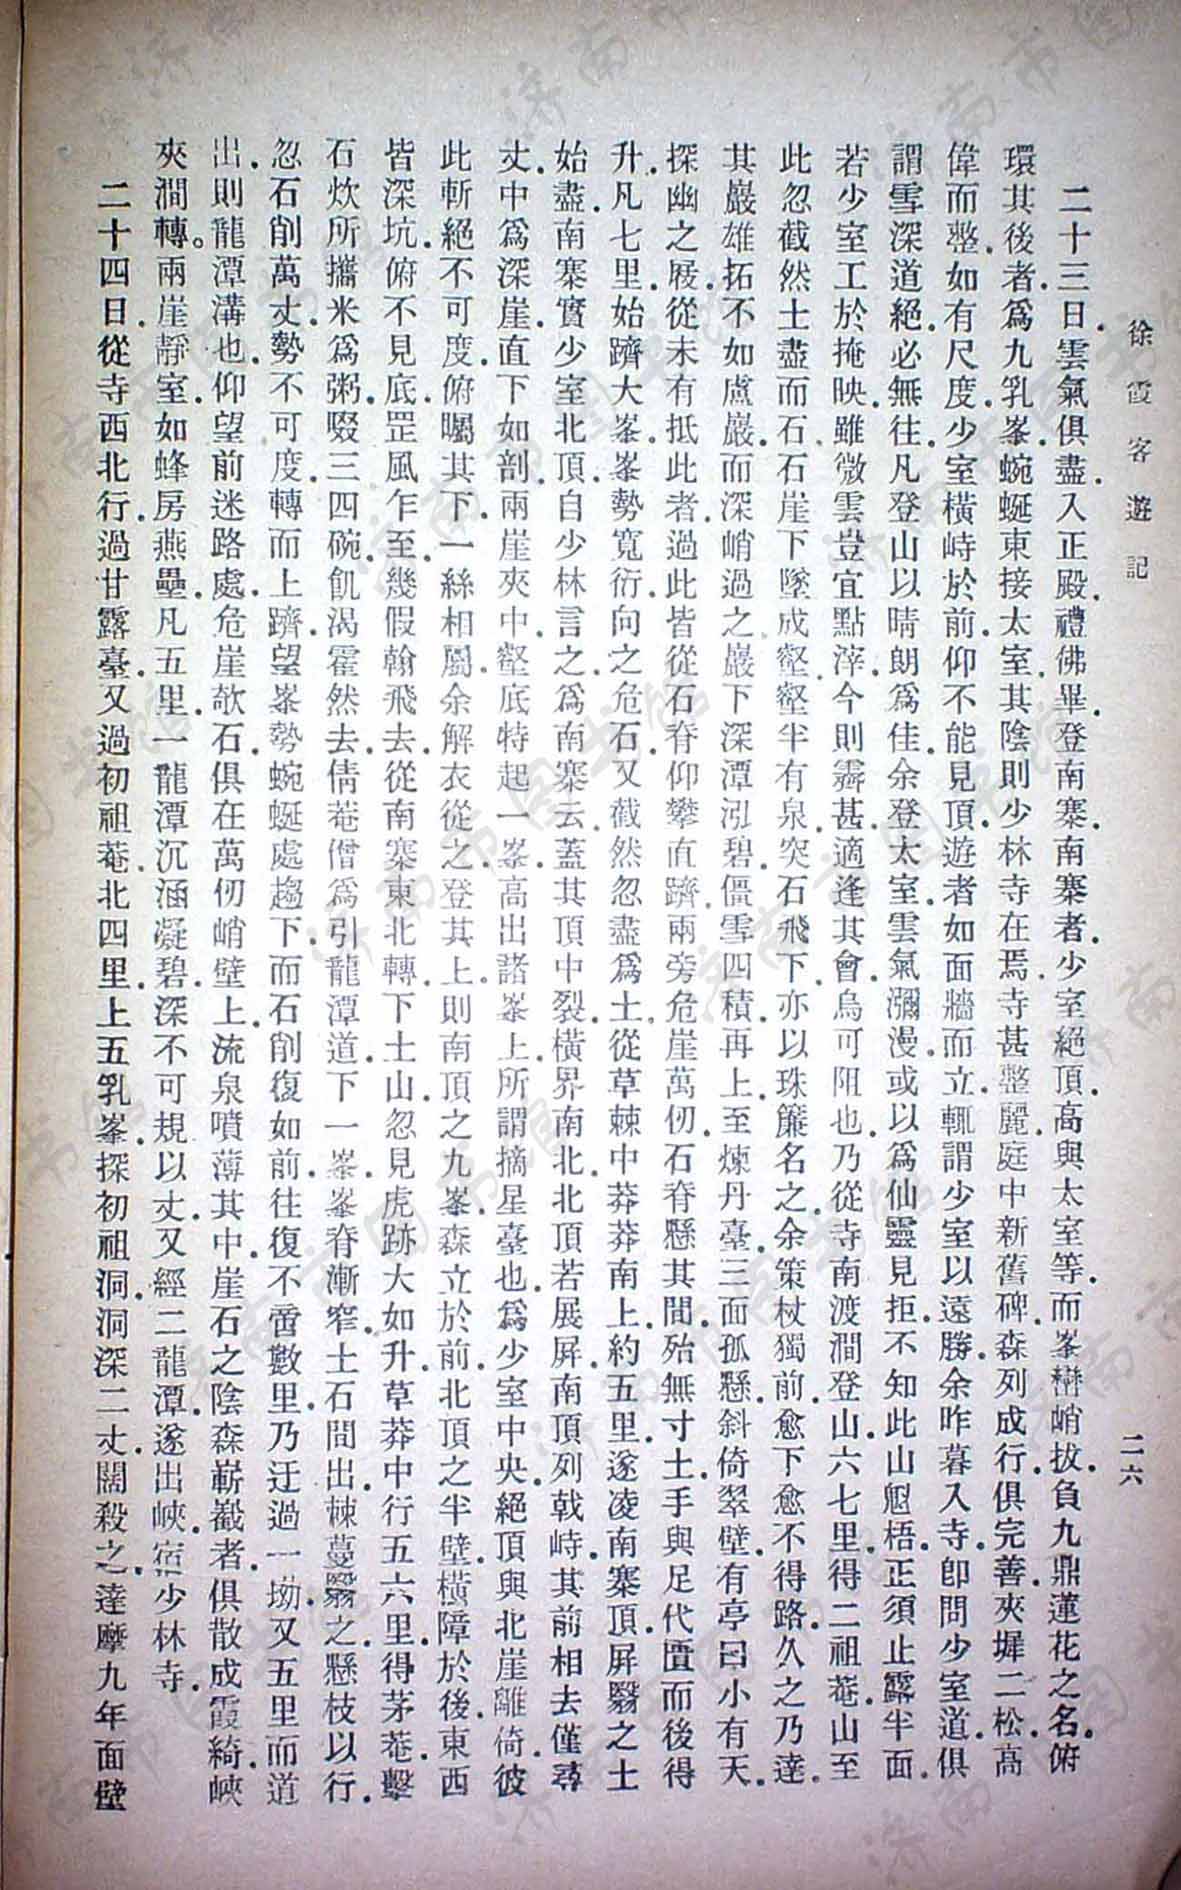 徐霞客遊記
二六
二十三日．雲氣俱盡．入正殿．禮佛畢．登南寨．南寨者．少室絕頂．高與太室等．而峯巒峭拔．負九鼎蓮花之名．俯
環其後者．爲九乳峯．蜿蜒東接太室．其陰則少林寺在焉．寺甚整麗．庭中新舊碑．森列成行．俱完善．夾墀二松．高
偉而整．如有尺度．少室橫峙於前．仰不能見頂．遊者如面牆而立．輒謂少室以遠勝．余昨暮入寺．卽問少室道．俱
謂雪深道絕．必無往．凡登山以晴朗爲佳．余登太室．雲氣瀰漫．或以爲仙靈見拒．不知此山魁梧．正須止露半面．
若少室工於掩映．雖微雲豈宜點滓．今則霽甚．適逢其會．烏可阻也．乃從寺南渡澗登山．六七里．得二祖菴．山至
此忽截然土盡而石．石崖下墜成壑．壑半有泉．突石飛下．亦以珠簾名之．余策杖獨前．愈下愈不得路．久之乃達．
其巖雄拓不如盧巖．而深峭過之．巖下深潭泓碧．僵雪四積．再上至煉丹臺．三面孤懸．斜倚翠壁．有亭曰小有天．
探幽之屐．從未有抵此者．過此皆從石脊仰攀直躋．兩旁危崖萬仞．石脊懸其間．殆無寸土．手與足代匱而後得
升．凡七里．始躋大峯．峯勢寬衍．向之危石．又截然忽盡爲土．從草棘中莽莽南上．約五里．遂凌南寨頂．屏翳之土
始盡．南寨實少室北頂．自少林言之．爲南寨云．蓋其頂中裂．橫界南北．北頂若展屏．南頂列戟峙其前．相去僅尋
丈．中爲深崖．直下如剖．兩崖夾中．壑底特起一峯．高出諸峯上．所謂摘星臺也．爲少室中央．絕頂與北崖離倚．彼
此斬絕不可度．俯矚其下．一絲相屬．余解衣從之．登其上．則南頂之九峯．森立於前．北頂之半壁．橫障於後．東西
皆深坑．俯不見底．罡風乍至．幾假翰飛去．從南寨東北轉．下土山．忽見虎跡大如升．草莽中行五六里．得茅菴．擊
石炊所攜米爲粥．啜三四碗．飢渴霍然去．倩菴僧爲引龍潭道．下一峯．峯脊漸窄．土石間出．棘蔓翳之．懸枝以行．
忽石削萬丈．勢不可度．轉而上躋．望峯勢蜿蜒處趨下．而石削復如前．往復不啻數里．乃迂過一坳．又五里而道
出．則龍潭溝也．仰望前迷路處．危崖欹石．俱在萬仞峭壁上．流泉噴薄其中．崖石之陰森嶄嶻者．俱散成霞綺．峽
夾澗轉。兩崖靜室．如蜂房燕壘．凡五里．一龍潭沉涵凝碧．深不可規以丈．又經二龍潭．遂出峽．宿少林寺．
二十四日．從寺西北行．過甘露臺．又過初祖菴．北四里．上五乳峯．探初祖洞．洞深二丈．闊殺之．達摩九年面壁